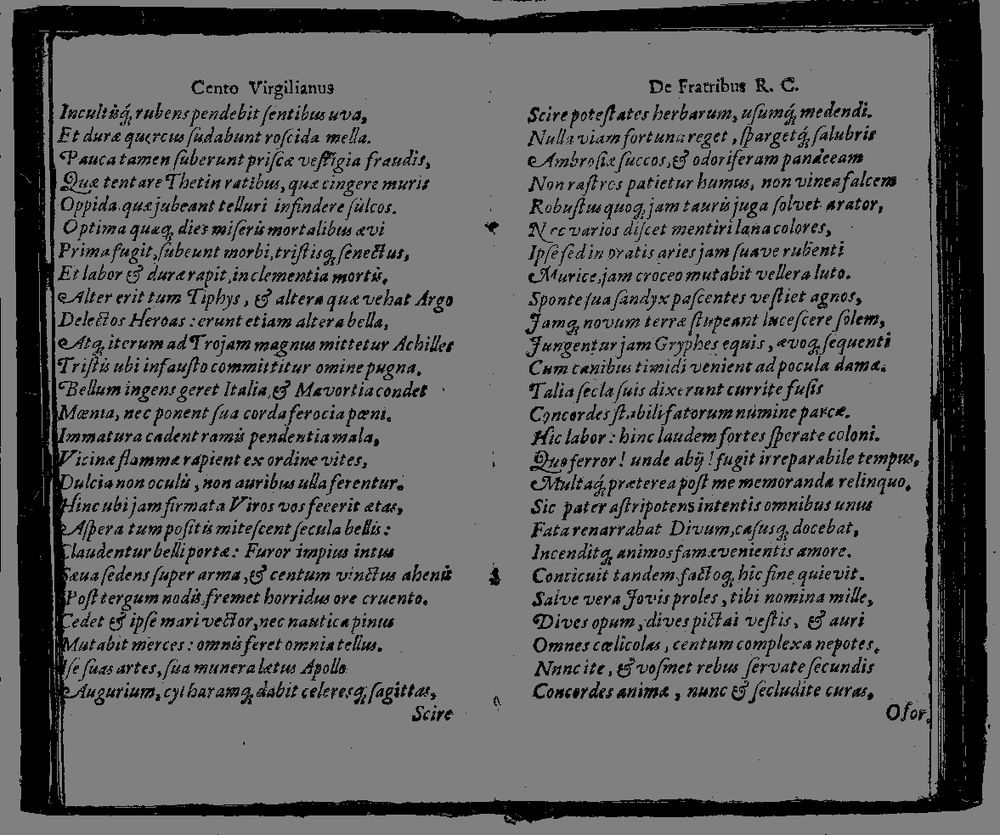 Cento Virgilianus
Incultisq́; rubens pendebit sentibus uva,
Et duræ quercus sudabunt roscida mella.
Pauca tamen suberunt priscæ vestigia fraudis,
Quæ tentare Thetin ratibus, quæ cingere muris
Oppida, quæ jubeant telluri infindere sulcos.
Optima quæq; dies miseris mortalibus ævi
Prima fugit, subeunt morbi, tristisq; senectus,
Et labor & duræ rapit, inclementia mortis.
Alter erit tum Tiphys, & altera quæ vehat Argo
Delectos Heroas: erunt etiam altera bella,
Atq; iterum ad Trojam magnus mittetur Achilles
Tristis ubi infausto committitur omine pugna.
Bellum ingens geret Italia, & Mavortia condet
Mœnia, nec ponent sua corda ferocia pœni.
Immatura cadent ramis pendentia mala,
Vicinæ flammæ rapient ex ordine vites,
Dulcia non oculis, non auribus ulla ferentur.
Hinc ubi jam firmata Viros vos fecerit ætas,
Aspera tum positis mitescent secula bellis:
Claudentur belli portæ: Furor impius intus
Sæva sedens super arma, & centum vinctus ahenis
Post tergum nodis, fremet horridus ore cruento.
Cedet & ipse mari vector, nec nautica pinus
Mutabit merces: omnis feret omnia tellus.
Ise suas artes, sua munera lætus Apollo
Augurium, cytharamq; dabit celeresq; sagittas,
Scire
De Fratribus R. C.
Scire potestates herbarum, usumq́; medendi.
Nulla viam fortuna reget, spargetq́; salubris
Ambrosiæ succos, & odoriferam panáceam
Non rastros patietur humus, non vinea falcem
Robustus quoq; jam tauris juga solvet arator,
Nec varios discet mentiri lana colores,
Ipse sed in pratis aries jam suave rubenti
Murice, jam croceo mutabit vellera luto.
Sponte sua sandyx pascentes vestiet agnos,
Jamq; novum terræ stupeant lucescere solem,
Jungentur jam Gryphes equis, ævoq; sequenti
Cum canibus timidi venient ad pocula damæ.
Talia secla suis dixerunt currite fusis
Concordes stabili fatorum numine parcæ.
Hic labor: hinc laudem fortes sperate coloni.
Quo feror! unde abij! fugit irreparabile tempus,
Multaq; præterea post me memoranda relinquo.
Sic pater astripotens intentis omnibus unus
Fata renarrabat Divum, casusq; docebat,
Incenditq; animos famæ venientis amore.
Conticuit tandem, factoq; hic fine quievit.
Salve vera Jovis proles, tibi nomina mille,
Dives opum, dives pictai vestis, & auri
Omnes cœlicolas, centum complexa nepotes.
Nnnc ite, & vosmet rebus servate secundis
Concordes animæ, nunc & secludite curas,
Osor,